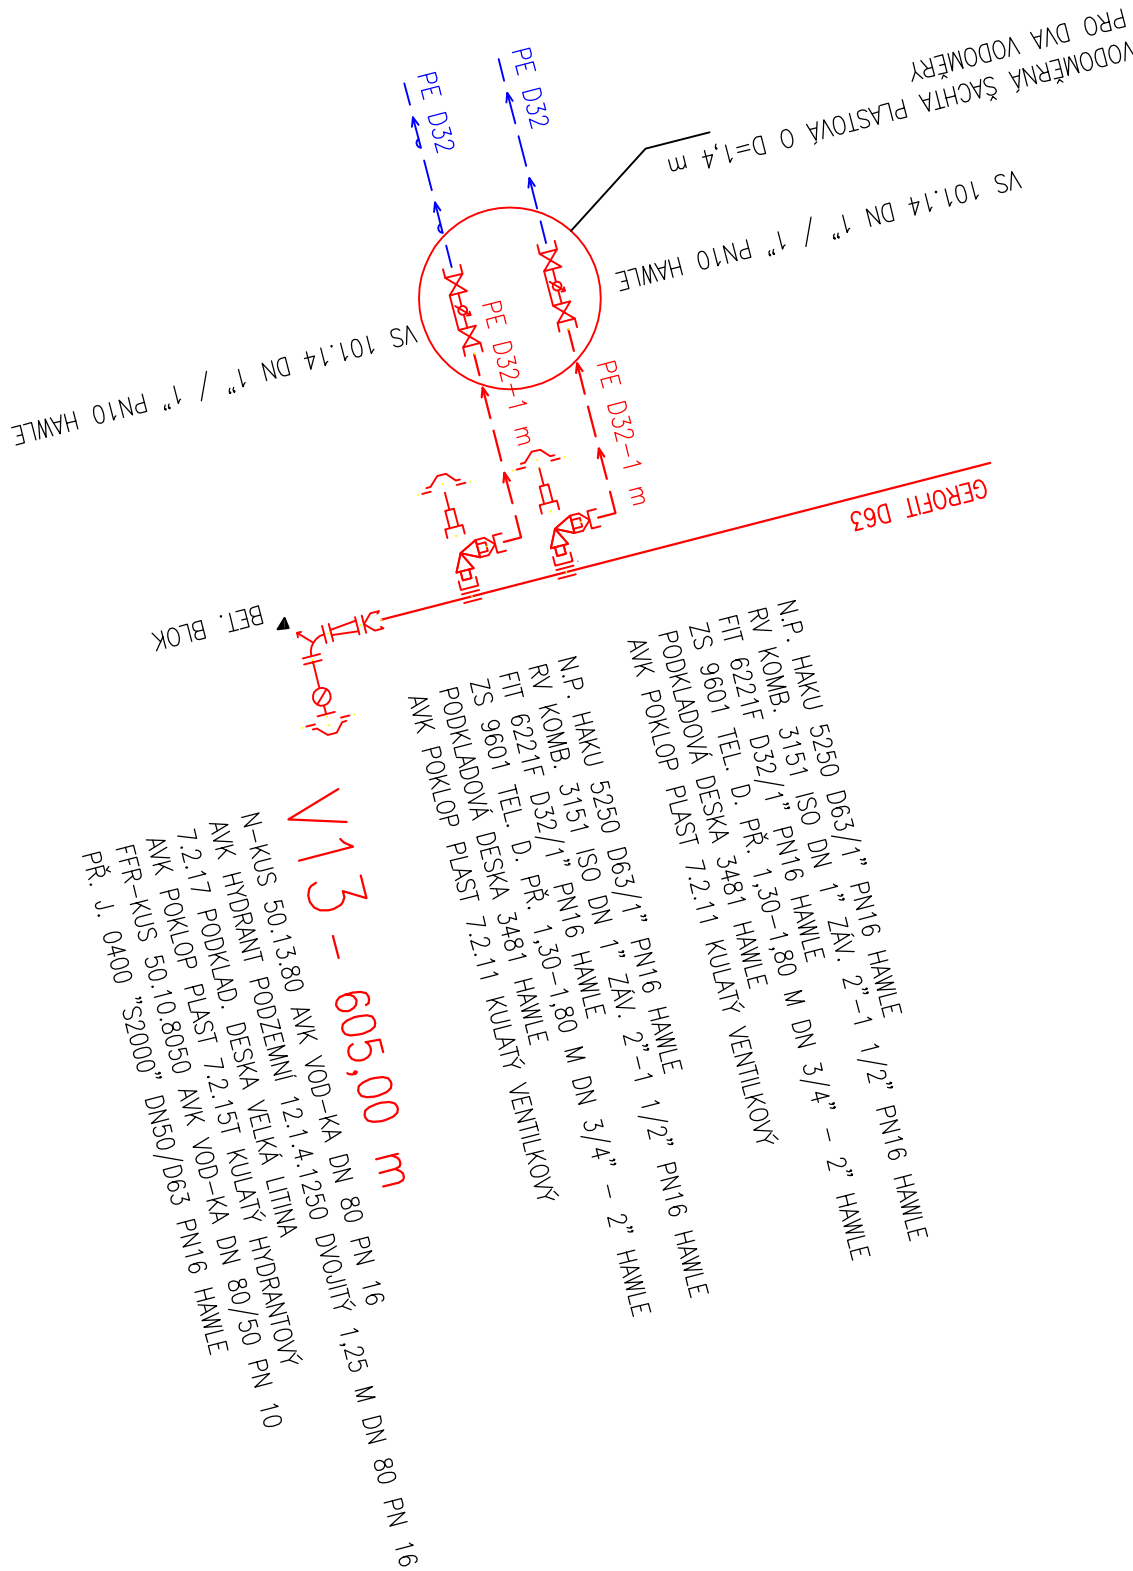 PE D32
PE D32
VODOMĚRNÁ ŠACHTA PLASTOVÁ O D=1,4 m
PRO DVA VODOMĚRY
VS 101.14 DN 1" / 1" PN10 HAWLE
VS 101.14 DN 1" / 1" PN10 HAWLE
PE D32-1 m
PE D32-1 m
GEROFIT D63
BET. BLOK
N.P. HAKU 5250 D63/1" PN16 HAWLE
RV KOMB. 3151 ISO DN 1" ZÁV. 2"-1 1/2" PN16 HAWLE
FIT 6221F D32/1" PN16 HAWLE
ZS 9601 TEL. D. PŘ. 1,30-1,80 M DN 3/4" - 2" HAWLE
PODKLADOVÁ DESKA 3481 HAWLE
AVK POKLOP PLAST 7.2.11 KULATÝ VENTILKOVÝ
N.P. HAKU 5250 D63/1" PN16 HAWLE
RV KOMB. 3151 ISO DN 1" ZÁV. 2"-1 1/2" PN16 HAWLE
FIT 6221F D32/1" PN16 HAWLE
ZS 9601 TEL. D. PŘ. 1,30-1,80 M DN 3/4" - 2" HAWLE
PODKLADOVÁ DESKA 3481 HAWLE
AVK POKLOP PLAST 7.2.11 KULATÝ VENTILKOVÝ
V13 - 605,00 m
N-KUS 50.13.80 AVK VOD-KA DN 80 PN 16
AVK HYDRANT PODZEMNÍ 12.1.4.1250 DVOJITÝ 1,25 M DN 80 PN 16
7.2.17 PODKLAD. DESKA VELKÁ LITINA
AVK POKLOP PLAST 7.2.15T KULATÝ HYDRANTOVÝ
FFR-KUS 50.10.8050 AVK VOD-KA DN 80/50 PN 10
PŘ. J. 0400 "S2000" DN50/D63 PN16 HAWLE